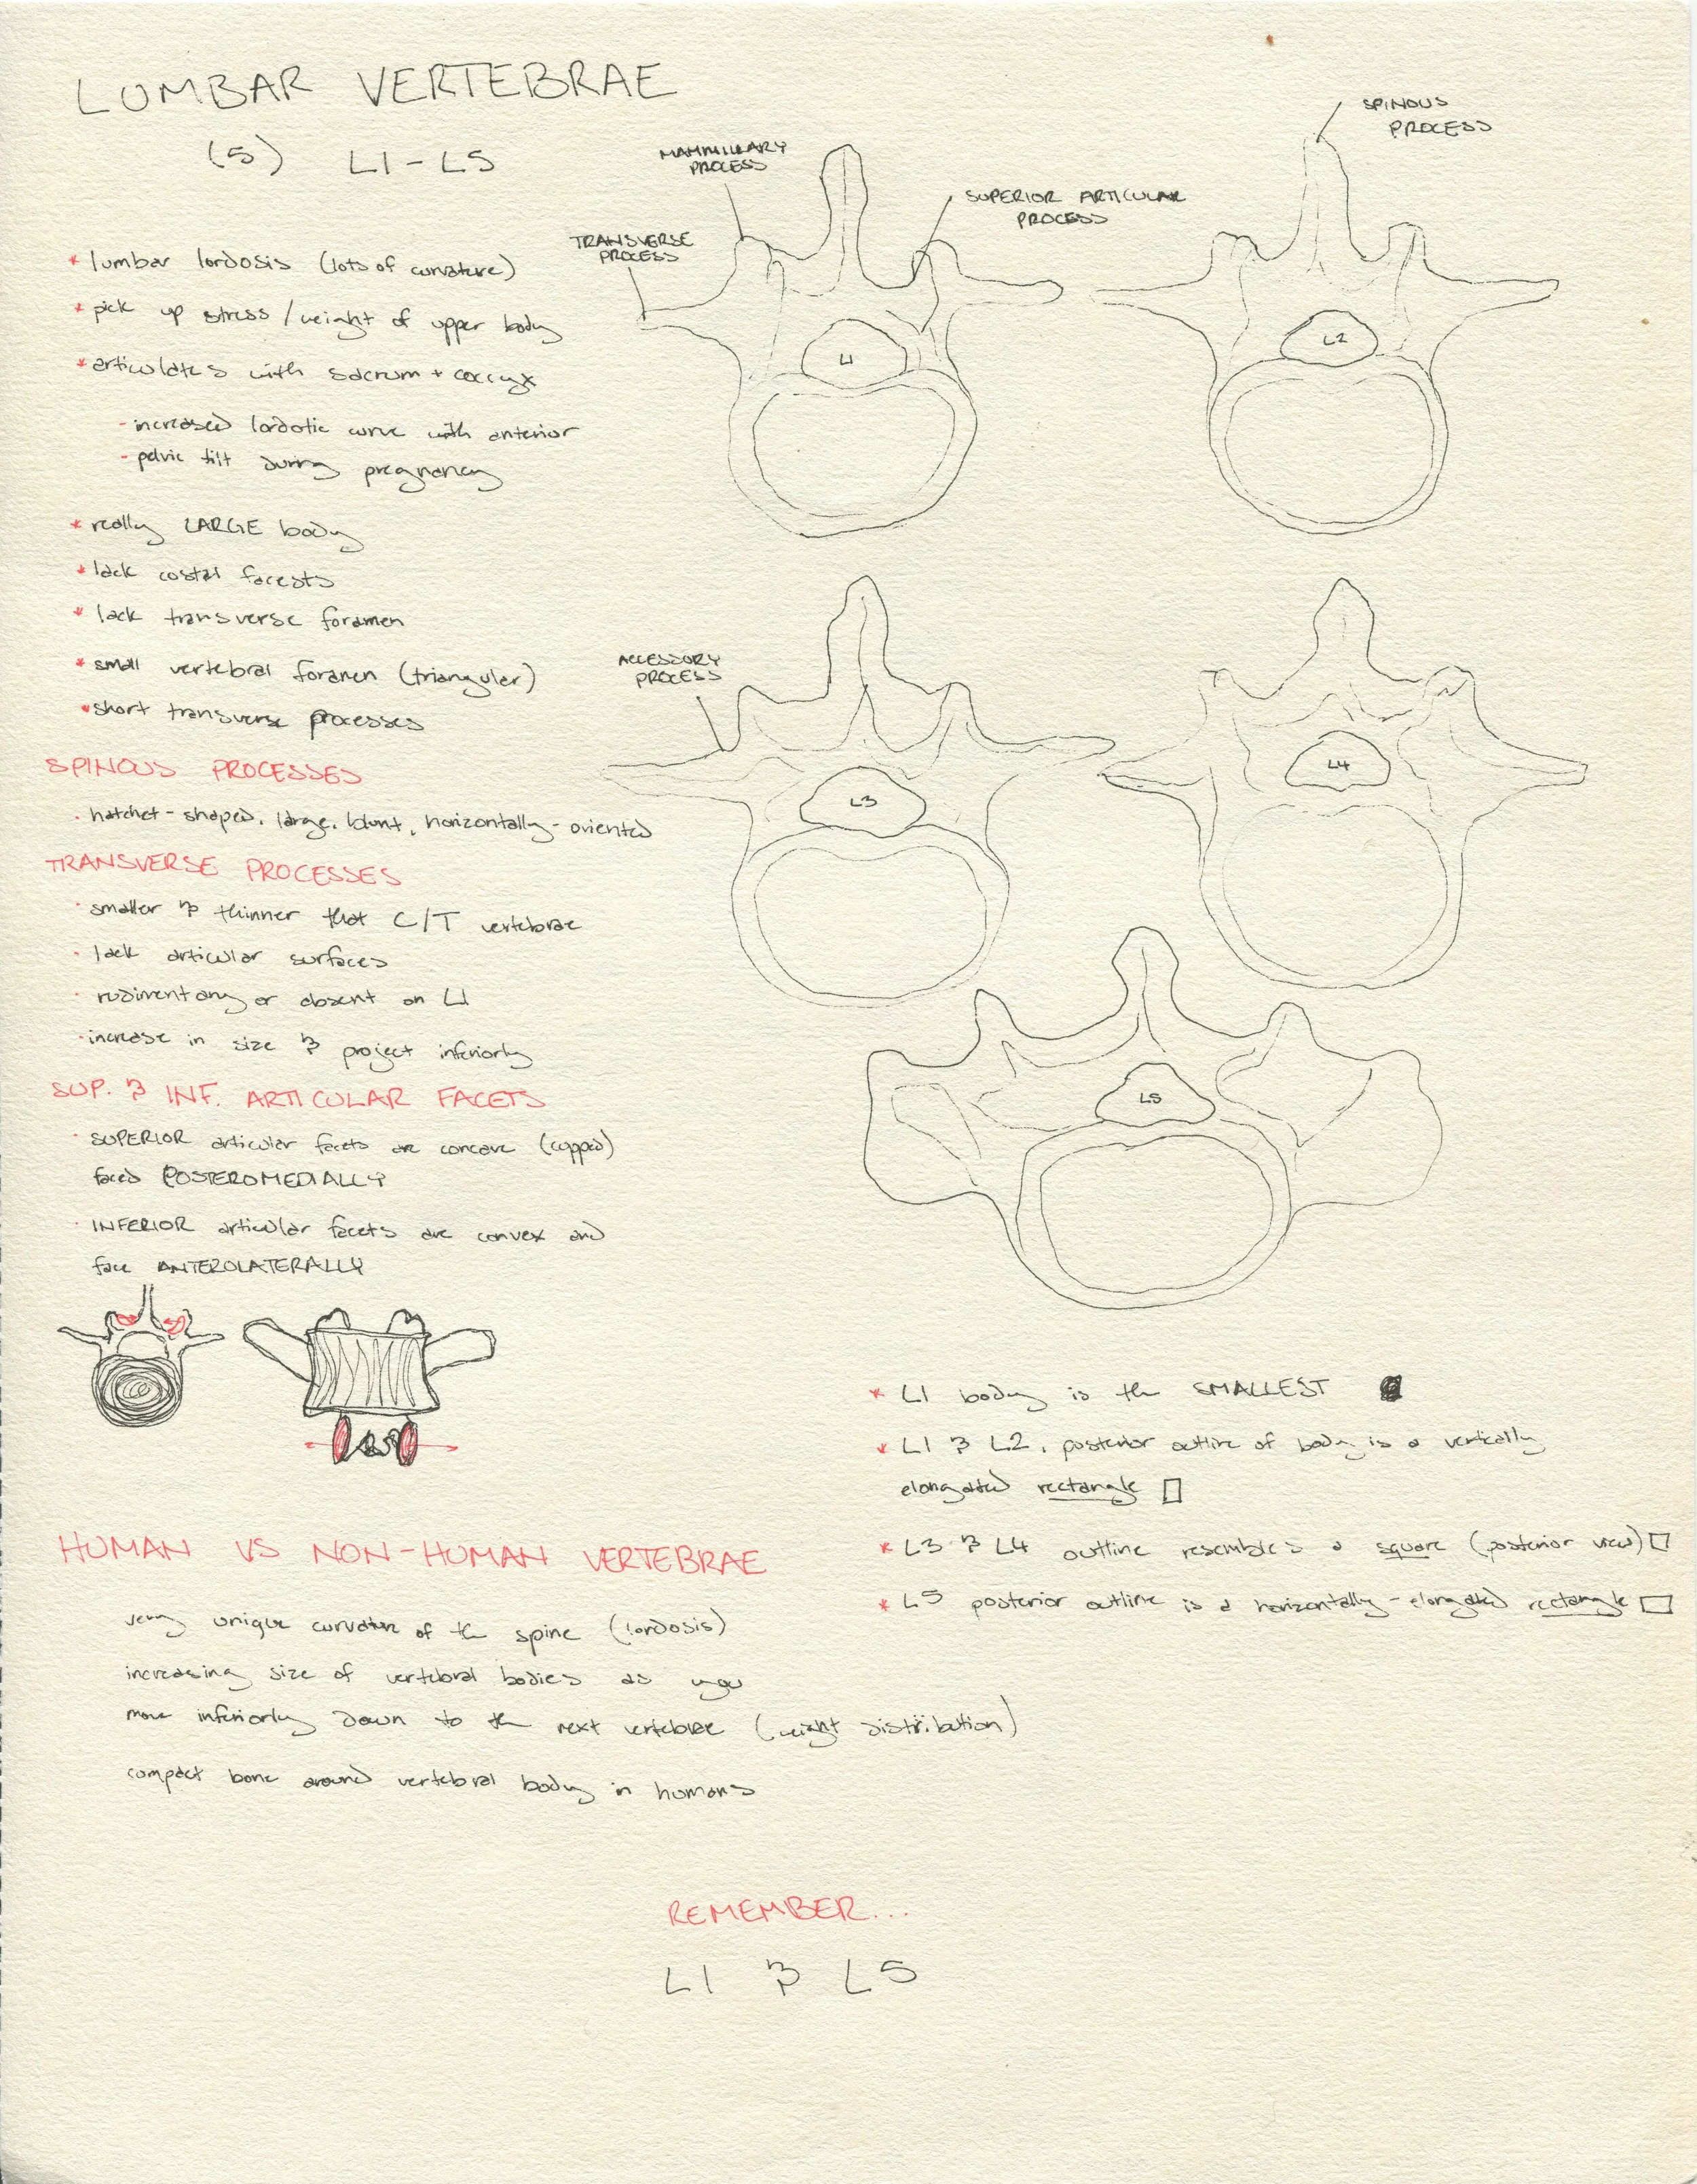 LUMBAR VERTEBRAE
(5) L1-L5
* lumbar lordosis (lots of curvature)
* pick up stress/weight of upper body
* articulates with sacrum + coccyx
- increased lordotic curve with anterior
- pelvic tilt during pregnancy
* really LARGE body
* lack costal facests
* lack transverse foramen
* small vertebral foramen (triangular)
* short transverse processes
SPINOUS PROCESSES
· hatchet-shaped, large, blunt, horizontally-oriented
TRANSVERSE PROCESSES
· smaller & thinner that C/T vertebrae
· lack articular surfaces
· rudimentary or absent on L1
· increase in size & project inferiorly
SUP. & INF. ARTICULAR FACETS
· SUPERIOR articular facets are concave (cupped)
faced POSTEROMEDIALLY
· INFERIOR articular facets are convex and
face ANTEROLATERALLY
MAMMILLARY
PROCESS
TRANSVERSE
PROCESS
SUPERIOR ARTICULAR
PROCESS
SPINOUS
PROCESS
L1
L2
ACCESSORY
PROCESS
L3
L4
L5
* L1 body is the SMALLEST
* L1 & L2, posterior outline of body is a vertically
elongated rectangle
* L3 & L4 outline resembles a square (posterior view)
* L5 posterior outline is a horizontally-elongated rectangle
HUMAN VS NON-HUMAN VERTEBRAE
very unique curvature of the spine (lordosis)
increasing size of vertebral bodies as you
move inferiorly down to the next vertebrae (weight distribution)
compact bone around vertebral body in humans
REMEMBER...
L1 & L5